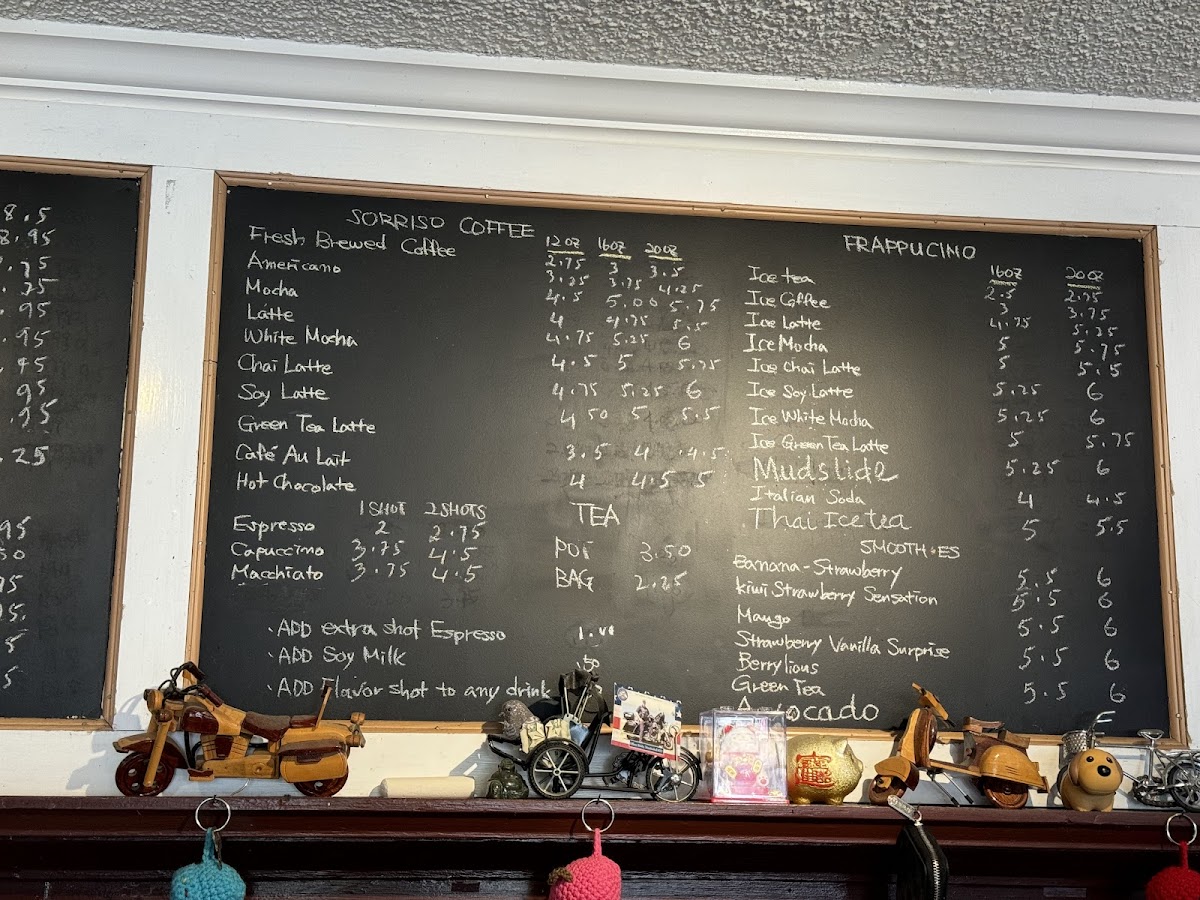 8.5
8.95
.75
.75
.95
.95
95
.25
95
50
SORRISO COFFEE
12oz 16oz 20oz
Fresh Brewed Coffee 2.75 3 3.5
Americano 3.25 3.75 4.25
Mocha 4.5 5.00 5.75
Latte 4 4.75 5.5
White Mocha 4.75 5.25 6
Chai Latte 4.5 5 5.75
Soy Latte 4.75 5.25 6
Green Tea Latte 4.50 5 5.5
Café Au Lait 3.5 4 4.5
Hot Chocolate 4 4.5 5
1 SHOT 2 SHOTS
Espresso 2 2.75
Capuccino 3.75 4.5
Macchiato 3.75 4.5
TEA
POT 3.50
BAG 2.25
.ADD extra shot Espresso 1.00
.ADD Soy Milk .50
.ADD Flavor shot to any drink
FRAPPUCINO
16oz 20oz
Ice tea 2.5 2.75
Ice Coffee 3 3.75
Ice Latte 4.75 5.25
Ice Mocha 5 5.75
Ice Chai Latte 5 5.5
Ice Soy Latte 5.25 6
Ice White Mocha 5.25 6
Ice Green Tea Latte 5 5.75
Mudslide 5.25 6
Italian Soda 4 4.5
Thai Ice tea 5 5.5
SMOOTHIES
Banana-Strawberry 5.5 6
kiwi Strawberry Sensation 5.5 6
Mango 5.5 6
Strawberry Vanilla Surprise 5.5 6
Berrylious
Green Tea 5.5 6
Avocado